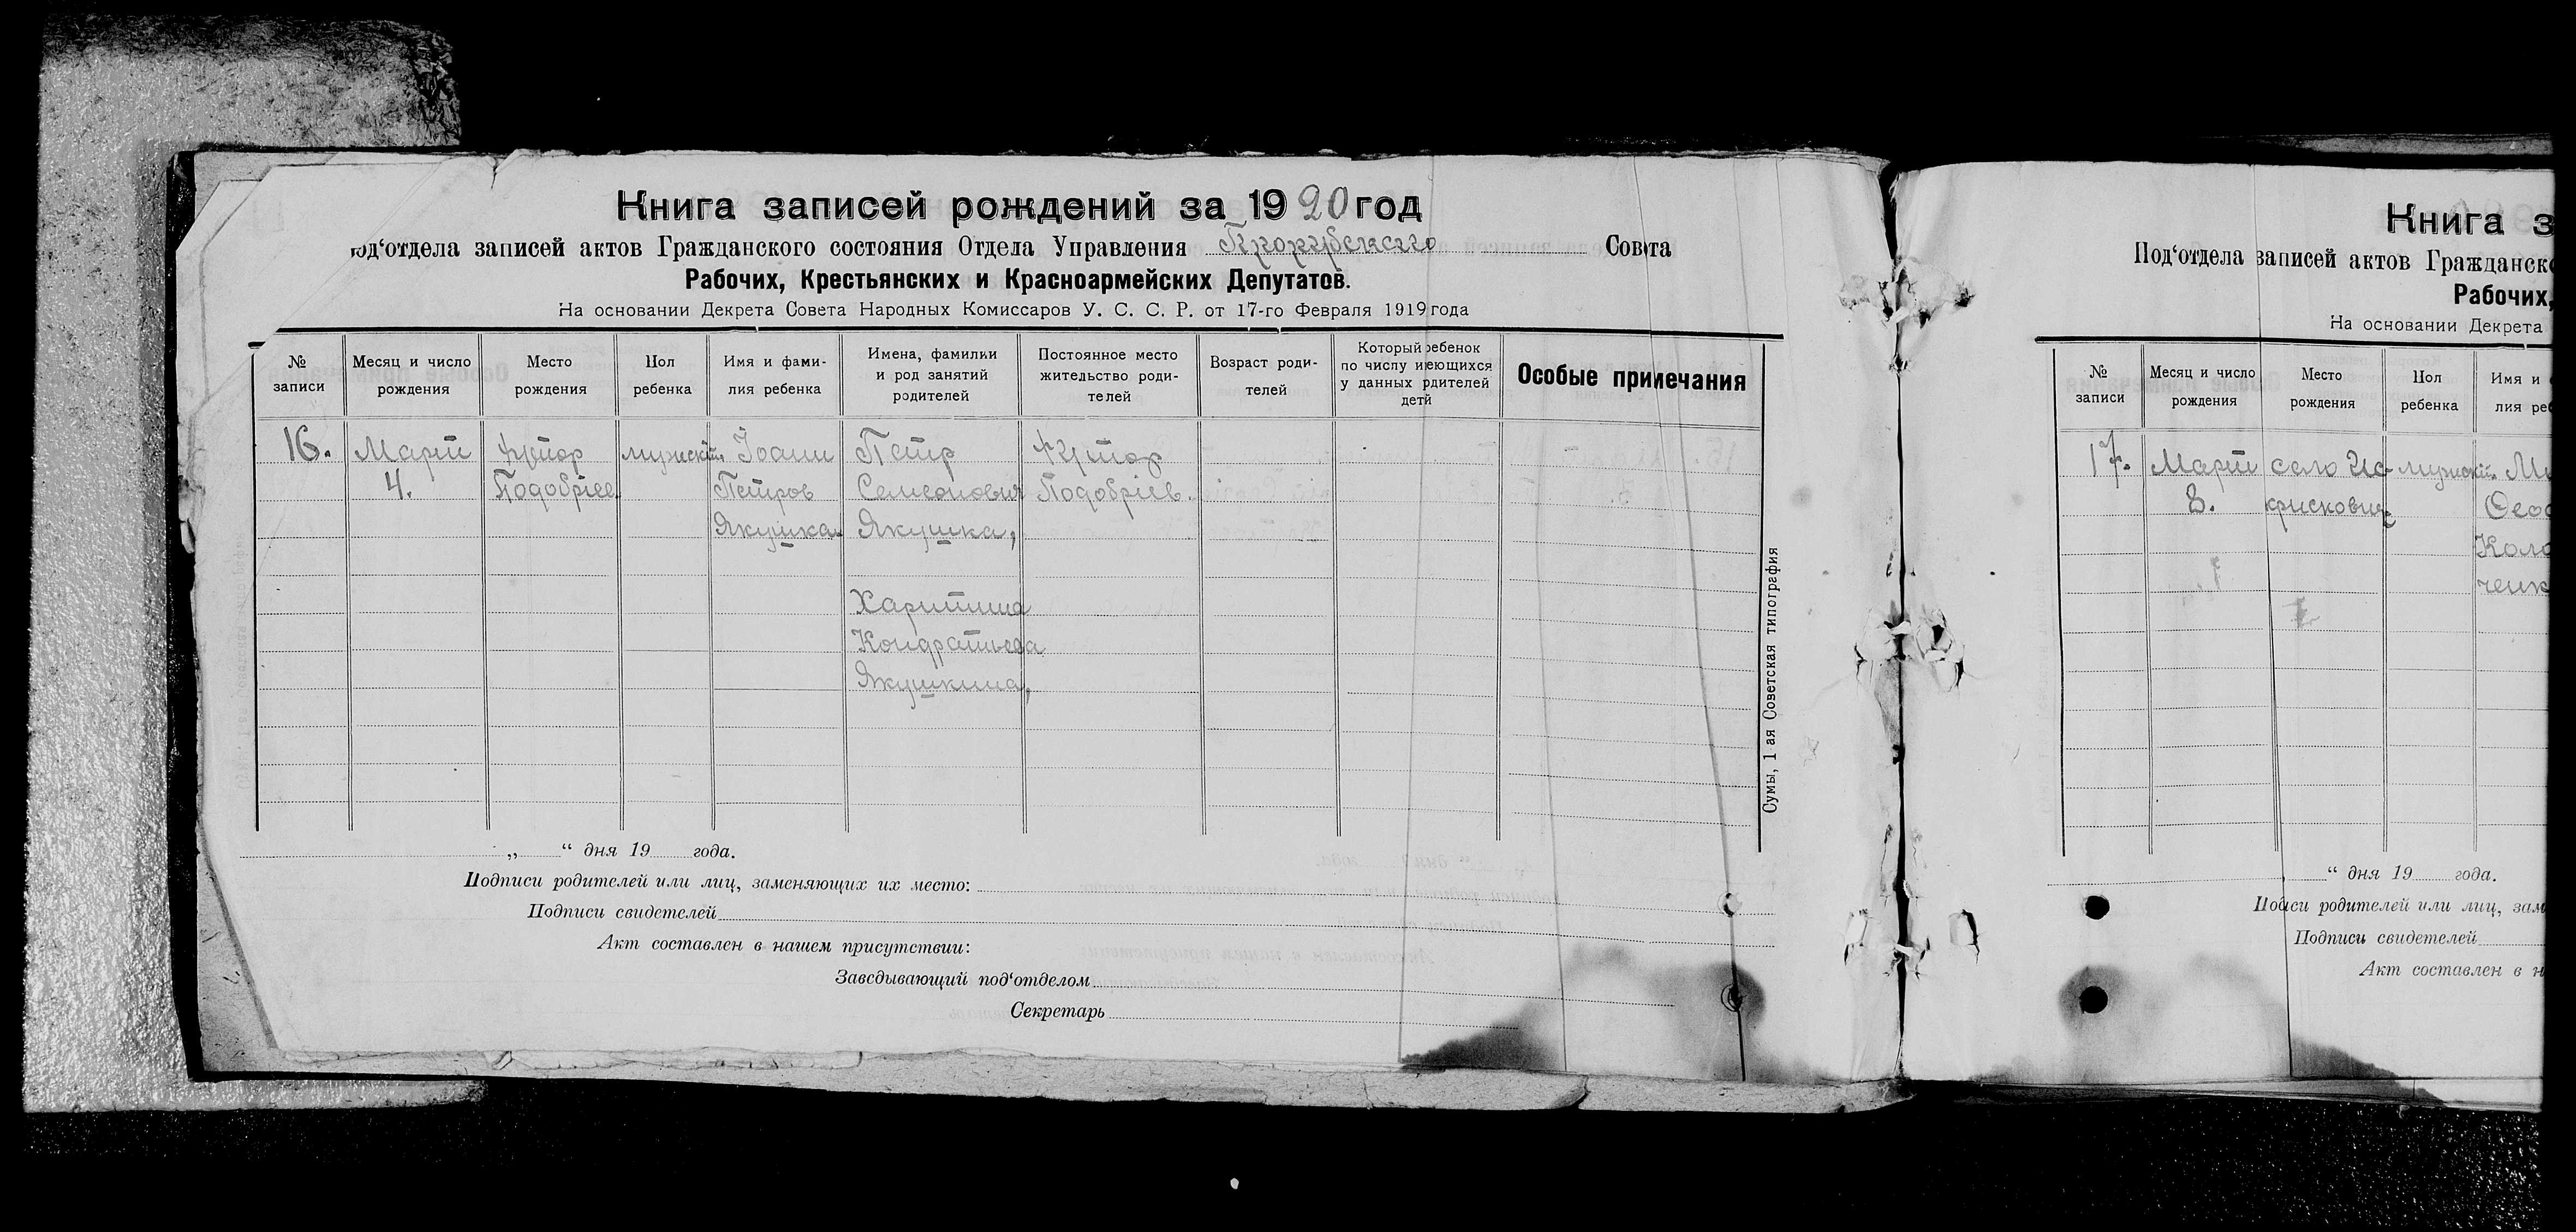 Книга записей рождений за 1920 год
Под‘отдела записей актов Гражданского состояния Отдела Управления Совета
Рабочих, Крестьянских и Красноармейских Депутатов.
На основании Декрета Совета Народных Комиссаров У. С. С. Р. от 17-го Февраля 1919 года
№ записи
Месяц и число рождения
Место рождения
Пол ребенка
Имя и фамилия ребенка
Имена, фамилии и род занятий родителей
Постоянное место жительство родителей
Возраст родителей
Который ребенок по числу имеющихся у данных родителей детй
Особые примечания
16. Март хутор мужскій. Іоанн Петр хутор
4. Подобріев Петров Семеонович Подобріев.
Якушка. Якушка,
Харитина
Кондратьева
Якушкина,
Сумы, 1 ая Советская типография
„ “ дня 19 года.
Подписи родителей или лиц, заменяющих их место:
Подписи свидетелей
Акт составлен в нашем присутствии:
Заведывающий под‘отделом
Секретарь
Книга з
Под‘отдела записей актов Гражданск
Рабочих,
На основании Декрета
№ записи
Месяц и число рождения
Место рождения
Пол ребенка
Имя и
лия реб
17. Март село Ис- мужскій. Ми
8. крисковщ
ченк
“ дня 19 года.
Подписи родителей или лиц, зам
Подписи свидетелей
Акт составлен в н